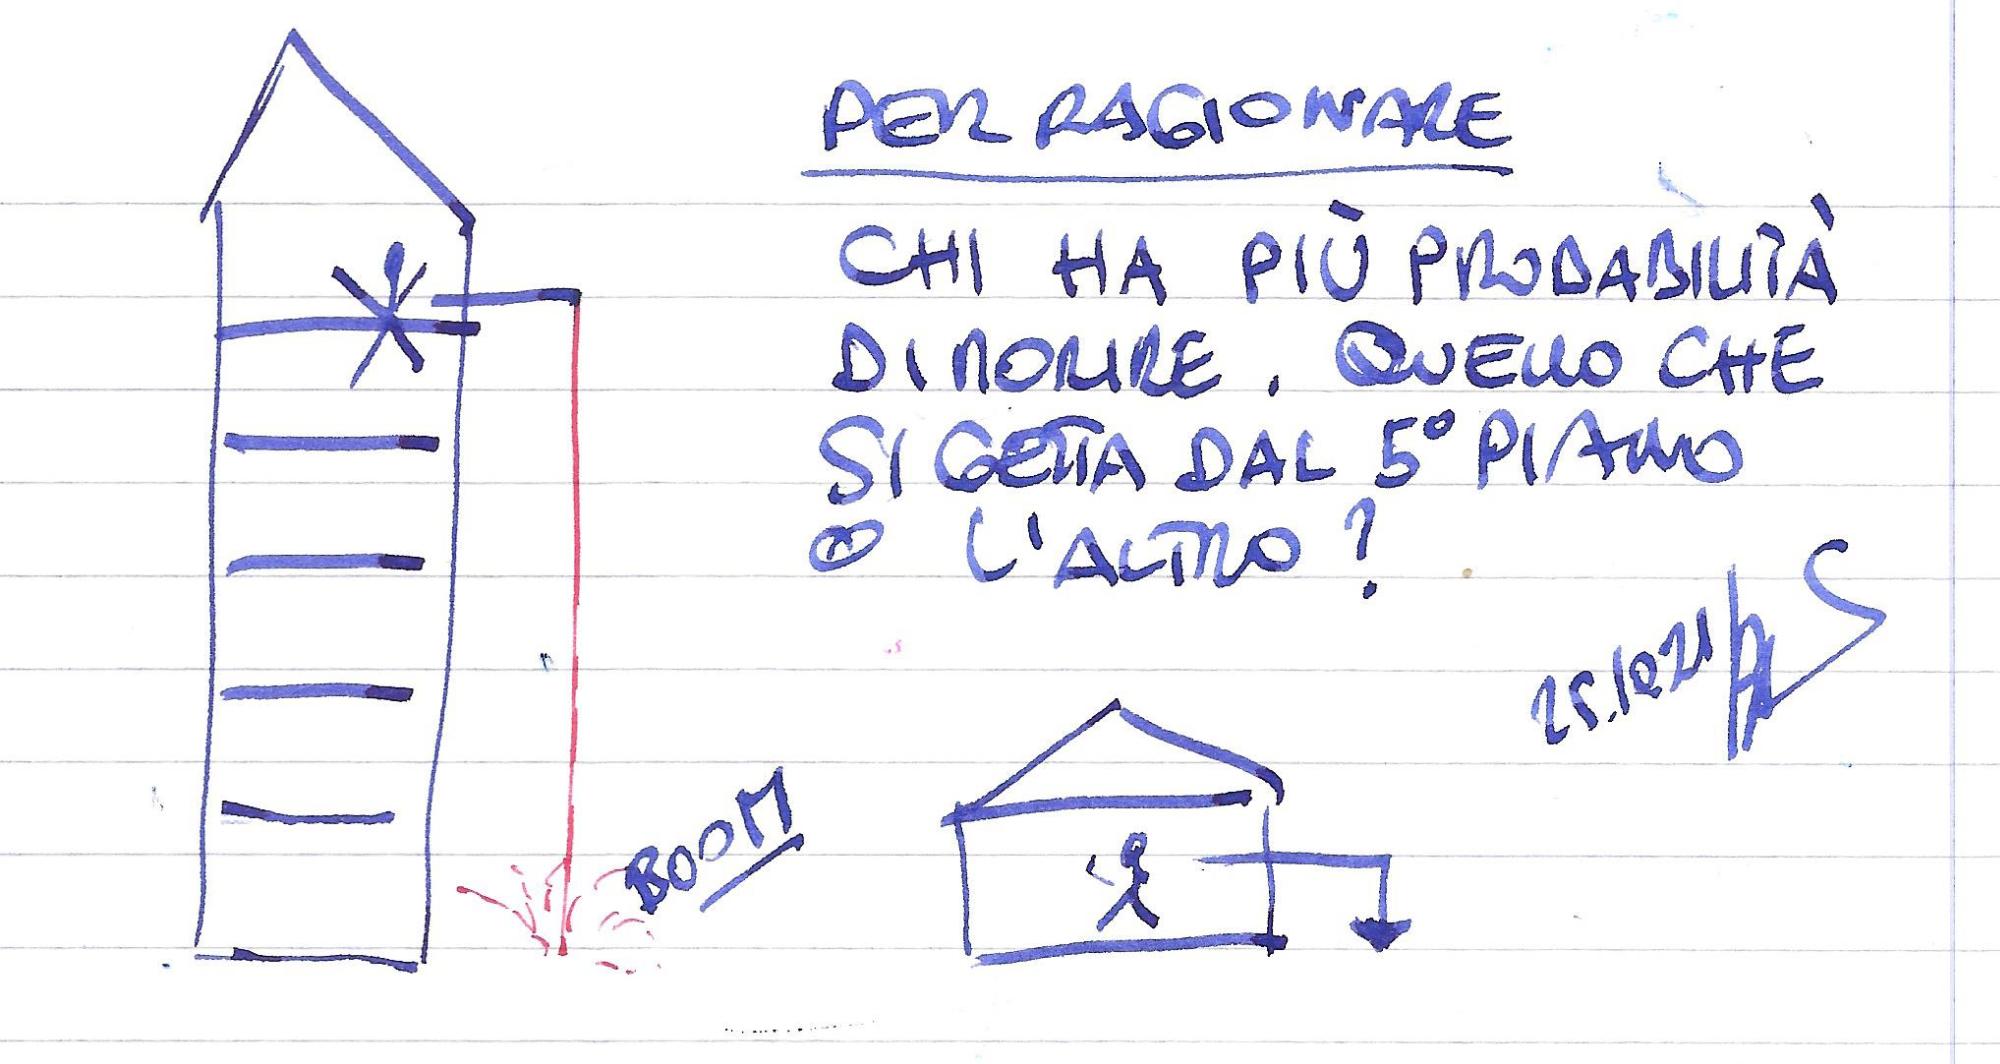 PER RAGIONARE
CHI HA PIÙ PROBABILITÀ
DI MORIRE. QUELLO CHE
SI GETTA DAL 5° PIANO
O L'ALTRO?
25.10.21
BOOM